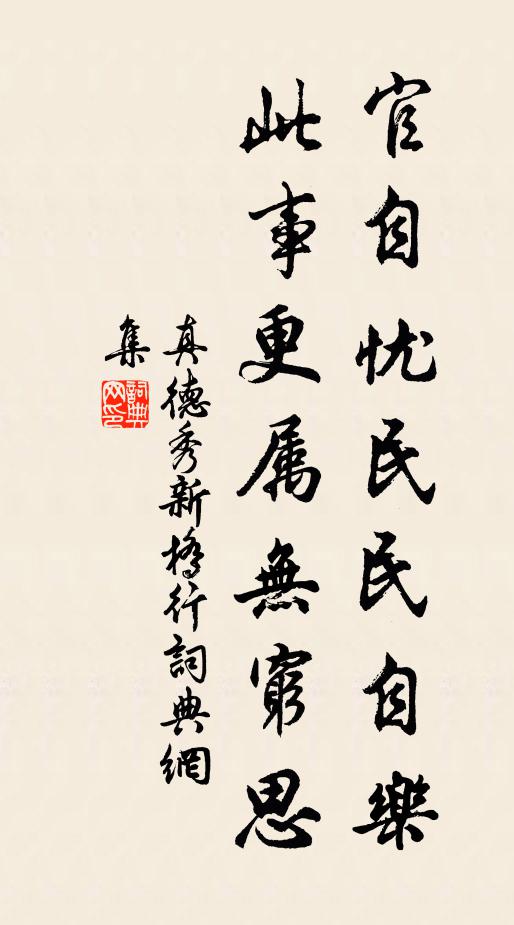 官自忧民民自樂
此事更属無窮思
真德秀新橋行詞典網
集
詞典
网印